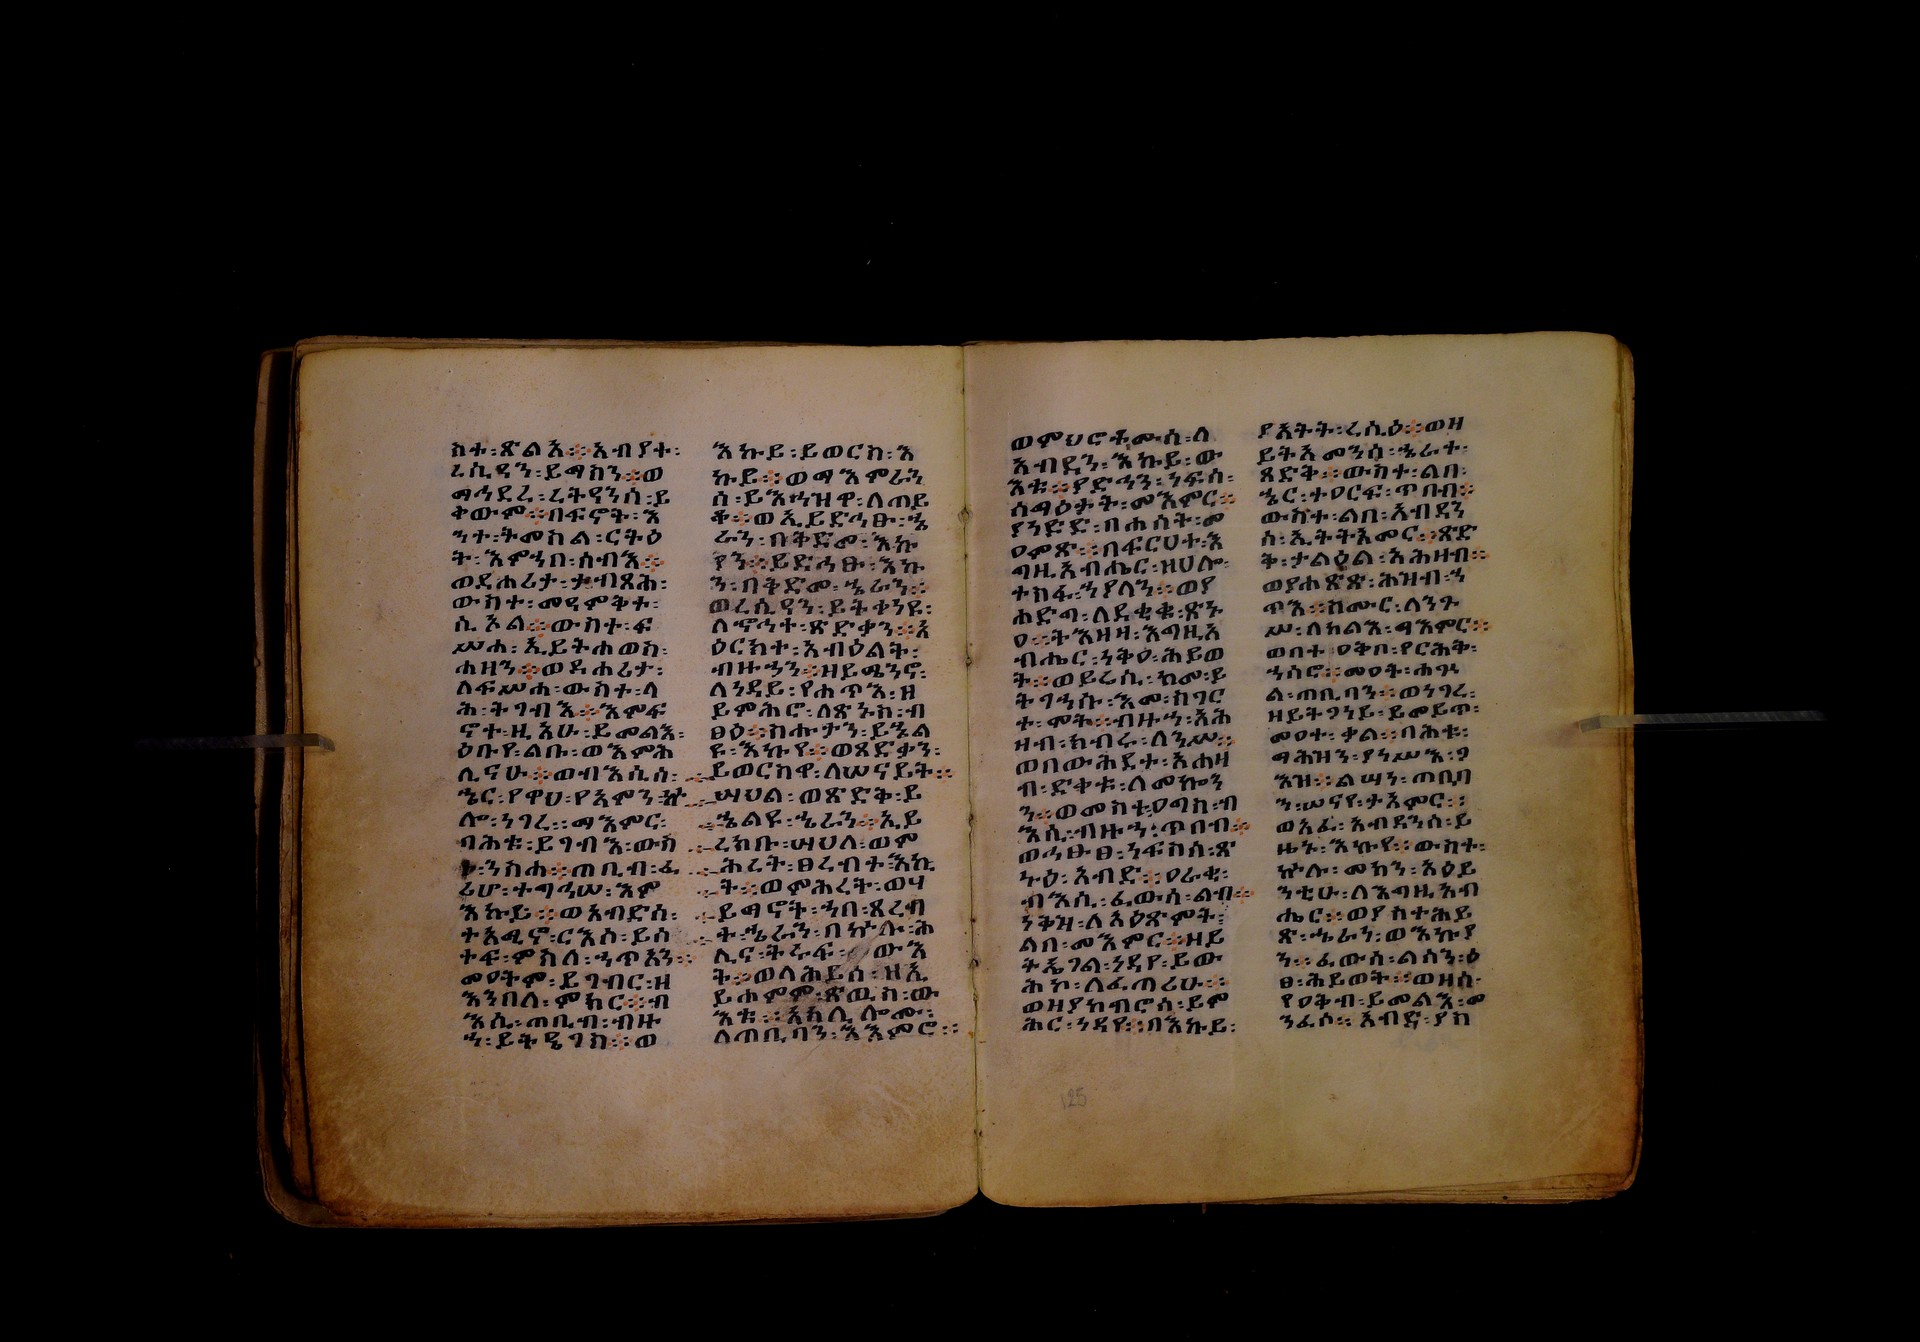 ከተ፡ጽልአ፨አብያተ፡
ረሲዓን፡ይማስን፨ወ
ማኅደረ፡ረትዓንሰ፡ይ
ቀውም፨በፍኖት፡እ
ንተ፡ትመስል፡ርትዕ
ት፡እምኀበ፡ሰብእ፨
ወደሐሪታ፡ታብጻሕ፡
ውስተ፡መዓምቅተ፡
ሲኦል፨ውስተ፡ፍ
ሥሐ፡ኢይትሐወስ፡
ሐዘን፨ወዳሕሪታ፡
ለፍሥሐ፡ውስተ፡ላ
ሕ፡ትገብእ፨እምፍ
ኖተ፡ዚአሁ፡ይመልእ፡
ዕቡየ፡ልቡ፡ወእምሕ
ሊናሁ፨ወብእሲሰ፡
ኄር፡የዋህ፡የአምን፡ኵ
ሎ፡ነገረ፨ማእምር፡
ባሕቱ፡ይገብእ፡ውስ
ተ፡ንስሐ፨ጠቢብ፡ፈ
ሪሆ፡ተግኅሠ፡እም
እኩይ፨ወአብድሰ፡
ተአሚኖ፡ርእሶ፡ይሰ
ተፍ፡ምስለ፡ኃጥአን፨
መዐትም፡ይገብር፡ዘ
እንበለ፡ምክር፨ብ
እሲ፡ጠቢብ፡ብዙ
ኀ፡ይትዔገስ፨ወ
እኩይ፡ይወርስ፡እ
ኩይ፨ወማእምራን
ሰ፡ይእኅዝዋ፡ለጠይ
ቆ፨ወኢይድኅፁ፡ኄ
ራን፡በቅድመ፡እኩ
ያን፨ይድኅፁ፡እኩ
ን፡በቅድመ፡ኄራን፨
ወረሲዓን፡ይትቀነዩ፡
ለኆኅተ፡ጽድቃን፨አ
ዕርክተ፡አብዕልት፡
ብዙኃን፨ዘይሜንኖ፡
ለነዳይ፡የሐጥእ፡ዘ
ይምሕሮ፡ለጽኑስ፡ብ
ፁዕ፨ስሑታን፡ይኄል
ዩ፡እኩየ፨ወጻድቃን፡
ይወርስዋ፡ለሠናይት፨
ሣህል፡ወጽድቅ፡ይ
ኄልዩ፡ኄራን፨ኢይ
ረክቡ፡ሣህለ፡ወም
ሕረት፡ፀረብተ፡እኪ
ት፨ወምሕረት፡ወሃ
ይማኖት፡ኀበ፡ጸረብ
ት፡ኄራን፡በኵሉ፡ሕ
ሊና፡ትሩፍ፡ውእ
ት፨ወለሕይሰ፡ዘኢ
ይሐምም፡ጽዉስ፡ው
እቱ፨አክሊሎሙ፡
ለጠቢባን፡አእምሮ፨
ወምህሮቶሙሰ፡ለ
አብዳን፡እኩይ፡ው
እቱ፨ያድኅን፡ነፍሰ፡
ሰማዕታት፡መእምር፨
ያነድድ፡በሐሰት፡መ
ዐምጽ፨በፍርሀተ፡እ
ግዚአብሔር፡ዘሀሎ፡
ተስፋ፡ኀያላን፨ወያ
ሐድግ፡ለደቂቁ፡ጽኑ
ዐ፨ትእዛዘ፡እግዚአ
ብሔር፡ነቅዐ፡ሕይወ
ት፨ወይሬሲ፡ከመ፡ይ
ትገኀሡ፡እመ፡ስገር
ተ፡ሞት፨ብዙኀ፡አሕ
ዛብ፡ክብሩ፡ለንጉሥ፨
ወበውሕደተ፡አሕዛ
ብ፡ድቀቱ፡ለመኰን
ን፨ወመስቱዐግስ፡ብ
እሲ፡ብዙኀ፡ጥበብ፨
ወኅፁፀ፡ነፍስሰ፡ጽ
ኑዕ፡አብድ፨ዐራቂ፡
ብእሲ፡ፈውሰ፡ልብ፨
ነቅዝ፡ለአዕጽምት፡
ልበ፡መእምር፨ዘይ
ትዔገል፡ነዳየ፡ይው
ሕክ፡ለፈጣሪሁ፨
ወዘያከብሮሰ፡ይም
ሕር፡ነዳየ፨በእኩይ፡
ያአትት፡ረሲዕ፨ወዘ
ይትአመንሰ፡ኄራተ፡
ጻድቅ፨ውስተ፡ልበ፡
ኄር፡ተዐርፍ፡ጥበብ፨
ውስተ፡ልበ፡አብዳን
ሰ፡ኢትትአመር፨ጽድ
ቅ፡ታልዕል፡አሕዛበ፨
ወያሐጽጽ፡ሕዝብ፡ኀ
ጥእ፨ስሙር፡ለንጉ
ሥ፡ለክልእ፡ማእምር፨
ወበተ፡ዐቅቦ፡የርሕቅ፡
ኀሰሮ፨መዐት፡ሐጕ
ል፡ጠቢባን፨ወነገረ፡
ዘይትገነይ፡ይመይጥ፡
መዐተ፡ቃል፨ባሕቱ፡
ማሕዝን፡ያነሥእ፡ዖ
እዝ፨ልሣን፡ጠቢባ
ን፡ሠናየ፡ታአምር፨
ወአፈ፡አብዳንሰ፡ይ
ዜኑ፡እኩየ፨ውስተ፡
ኵሉ፡መካን፡አዕይ
ንቲሁ፡ለእግዚአብ
ሔር፨ወያስተሐይ
ጽ፡ኄራን፡ወእኩያ
ን፨ፈውሰ፡ልሳን፡ዕ
ፀ፡ሕይወት፨ወዘሰ፡
የዐቅብ፡ይመልእ፡መ
ንፈሶ፨አብድ፡ያስ
125